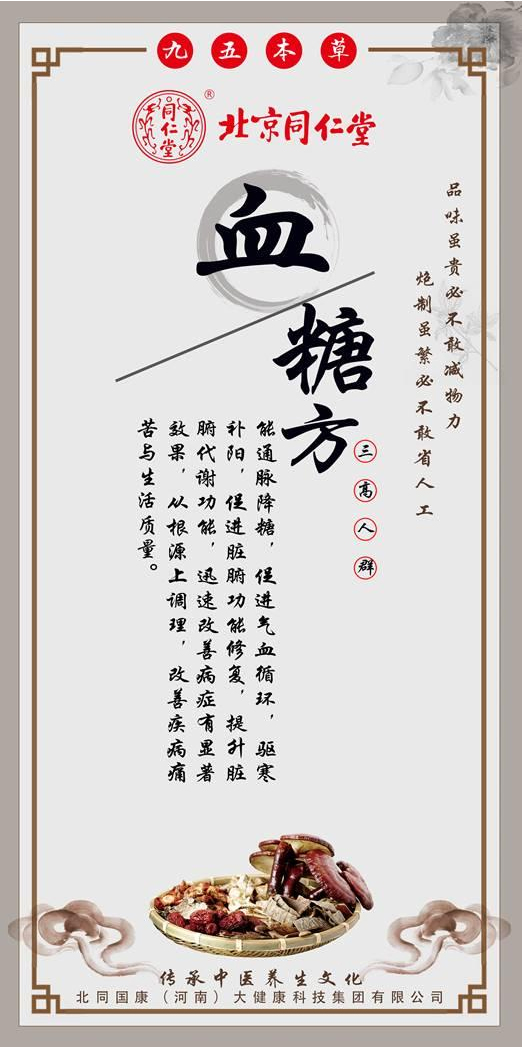 九五本草
同仁堂
®
北京同仁堂
血糖方
品味虽贵必不敢减物力
炮制虽繁必不敢省人工
三高人群
能通脉降糖，促进气血循环，驱寒
补阳，促进脏腑功能修复，提升脏
腑代谢功能，迅速改善病症有显著
效果，从根源上调理，改善疾病痛
苦与生活质量。
传承中医养生文化
北同国康（河南）大健康科技集团有限公司